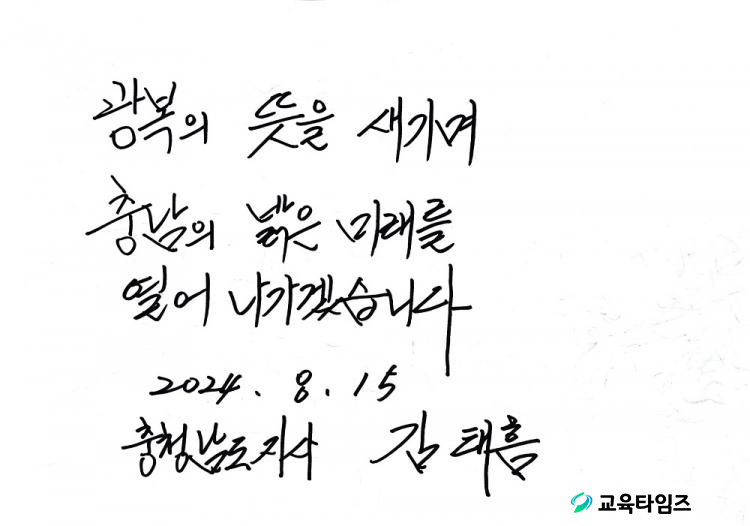 광복의 뜻을 새기며
충남의 밝은 미래를
열어 나가겠습니다
2024. 8. 15
충청남도지사 김태흠
교육타임즈